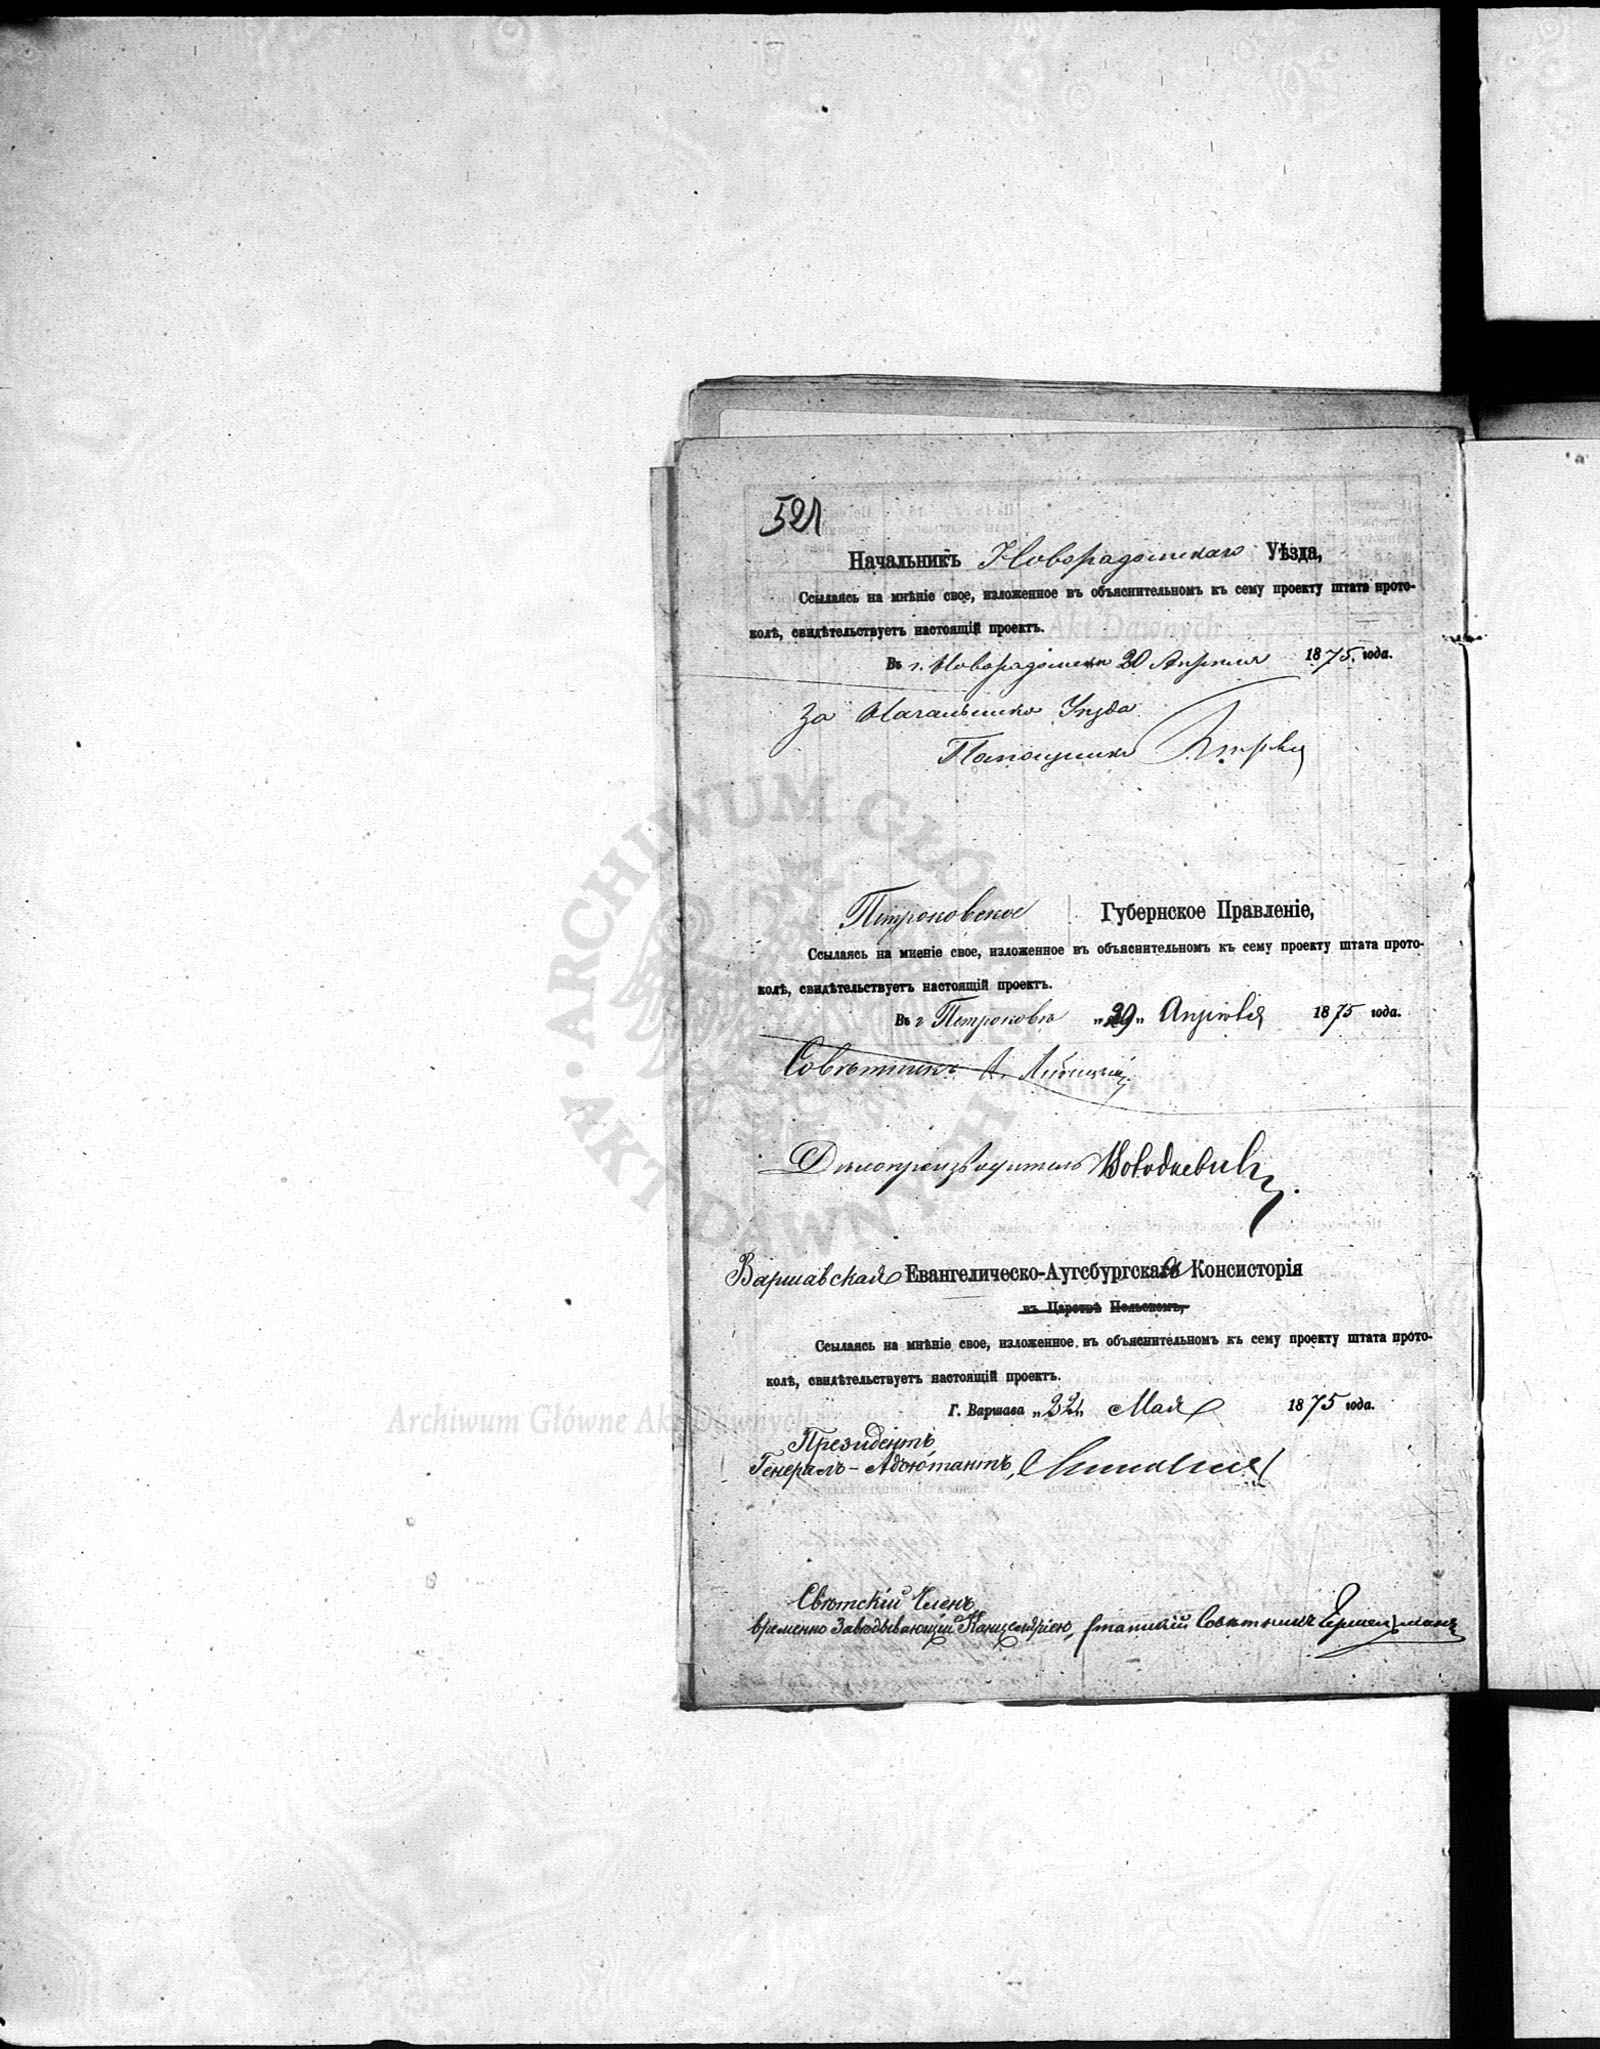 521
Начальникъ Новорадомскаго Уѣзда,
Ссылаясь на мнѣніе свое, изложенное въ объяснительномъ къ сему проекту штата прото-
колѣ, свидѣтельствуетъ настоящій проектъ.
Въ г. Новорадомскѣ 20 Апрѣля 1875 года.
За Начальника Уѣзда
Помощникъ
Петроковское Губернское Правленіе,
Ссылаясь на мненіе свое, изложенное въ объяснительномъ къ сему проекту штата прото-
колѣ, свидѣтельствуетъ настоящій проектъ.
Въ г Петроковѣ „29„ Апрѣля 1875 года.
Совѣтникъ
Дѣлопроизводитель
Варшавская Евангелическо-Аугсбургская Консисторія
въ Царствѣ Польскомъ,
Ссылаясь на мнѣніе свое, изложенное въ объяснительномъ къ сему проекту штата прото-
колѣ, свидѣтельствуетъ настоящій проектъ.
Г. Варшава „22„ Мая 1875 года.
Президентъ
Генералъ-Адъютантъ,
Свѣтскій Членъ,
временно Завѣдывающій Канцеляріею, Статскій Совѣтникъ
ARCHIWUM GŁÓWNE AKT DAWNYCH
Archiwum Główne Akt Dawnych
Akt Dawnych